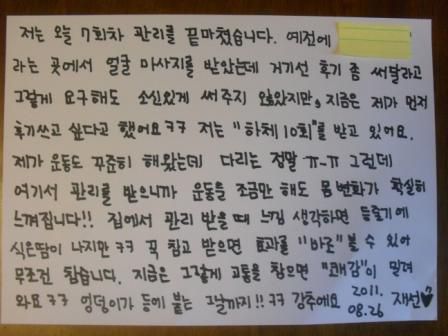 저는 오늘 7회차 관리를 끝마쳤습니다. 예전에
라는 곳에서 얼굴 마사지를 받았는데 거기선 후기 좀 써달라고
그렇게 요구해도 소신있게 써주지 않았지만, 지금은 제가 먼저
후기쓰고 싶다고 했어요ㅋㅋ 저는 "하체 10회"를 받고 있어요.
제가 운동도 꾸준히 해왔는데 다리는 정말 ㅠ-ㅠ 그런데
여기서 관리를 받으니까 운동을 조금만 해도 몸변화가 확실히
느껴집니다!! 집에서 관리 받을 때 느낌 생각하면 등줄기에
식은땀이 나지만 ㅋㅋ 꾹 참고 받으면 효과를 "바로" 볼 수 있어
무조건 참습니다. 지금은 그렇게 고통을 참으면 "쾌감"이 밀려
와요 ㅋㅋ 엉덩이가 등에 붙는 그날까지!! ㅋㅋ 강추에요 2011.
08.26 재선♥